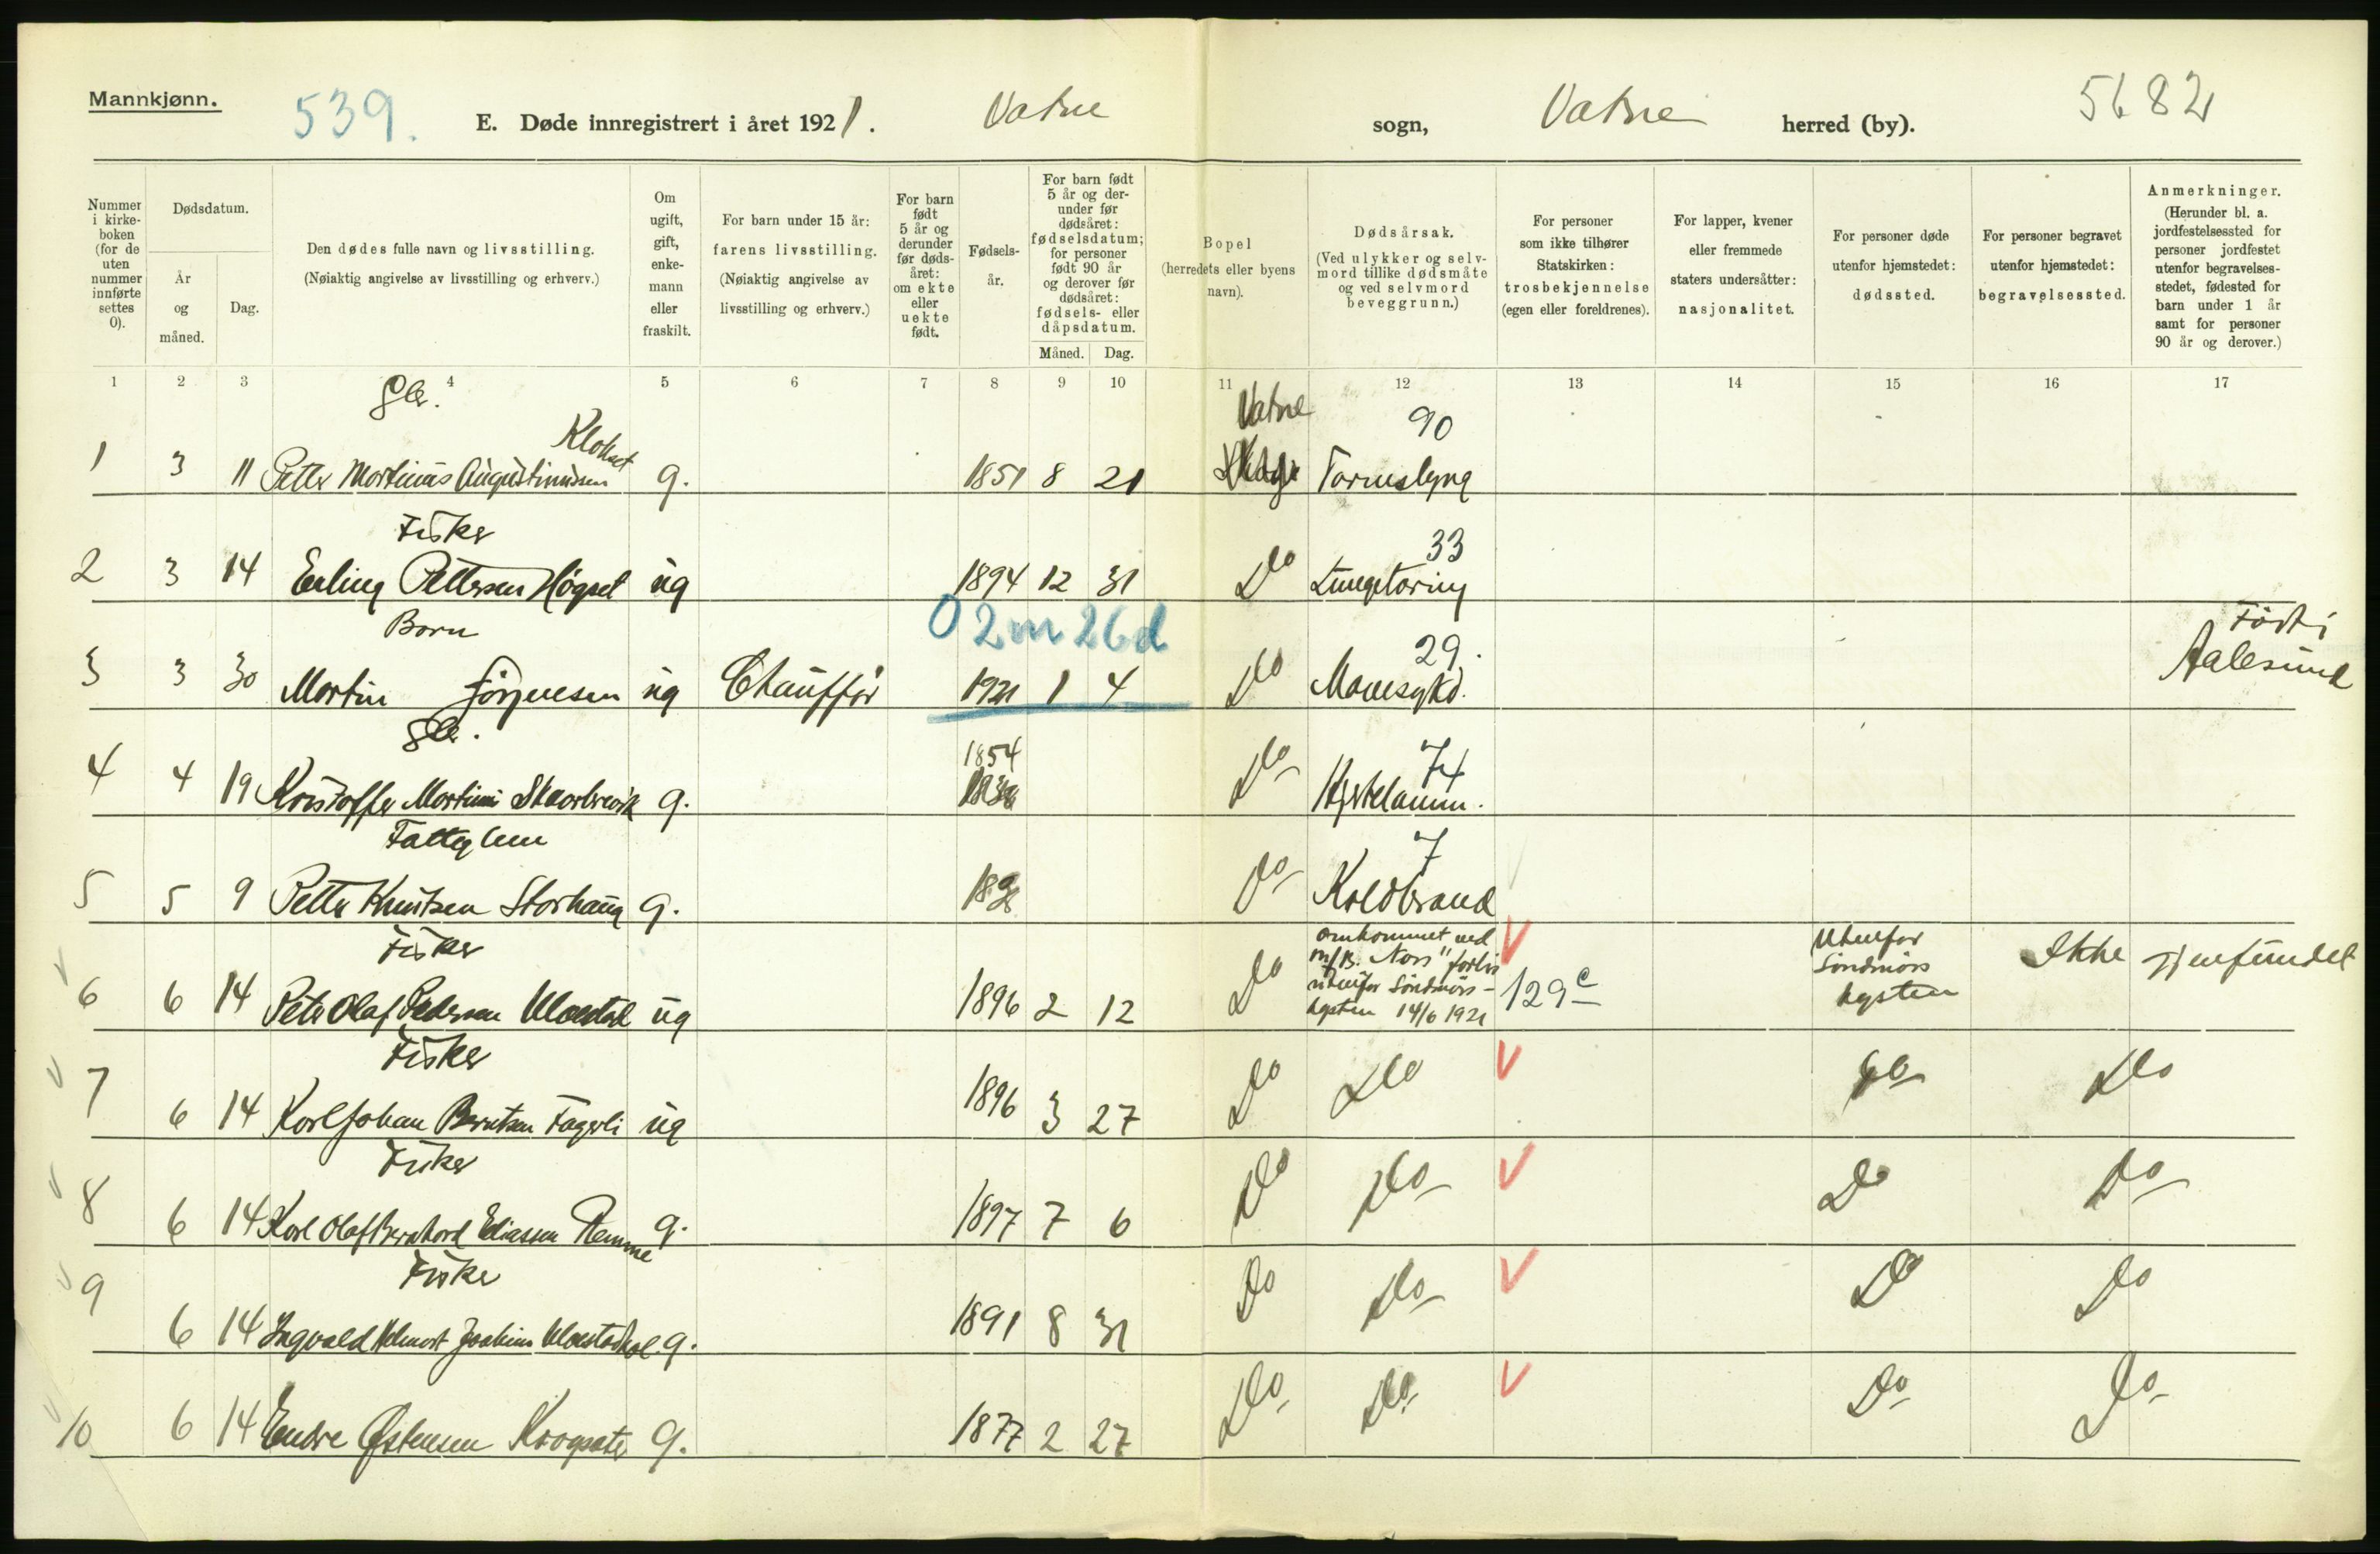 Mannkjønn.
539.
E. Døde innregistrert i året 1921.
Vatne
sogn,
Vatne
herred (by).
5682
Nummer i kirke-boken (for de uten nummer innførte settes 0).
Dødsdatum.
År og måned.
Dag.
Den dødes fulle navn og livsstilling.
(Nøiaktig angivelse av livsstilling og erhverv.)
Om ugift, gift, enke-mann eller fraskilt.
For barn under 15 år: farens livsstilling.
(Nøiaktig angivelse av livsstilling og erhverv.)
For barn født 5 år og derunder før døds-året: om ekte eller uekte født.
Fødsels-år.
For barn født 5 år og der-under før dødsåret: fødselsdatum; for personer født 90 år og derover før dødsåret: fødsels- eller dåpsdatum.
Måned.
Dag.
Bopel
(herredets eller byens navn).
Dødsårsak.
(Ved ulykker og selv-mord tillike dødsmåte og ved selvmord beveggrunn.)
For personer som ikke tilhører Statskirken: trosbekjennelse (egen eller foreldrenes).
For lapper, kvener eller fremmede staters undersåtter: nasjonalitet.
For personer døde utenfor hjemstedet: dødssted.
For personer begravet utenfor hjemstedet: begravelsessted.
Anmerkninger.
(Herunder bl. a. jordfestelsessted for personer jordfestet utenfor begravelses-stedet, fødested for barn under 1 år samt for personer 90 år og derover.)
1 2 3 4 5 6 7 8 9 10 11 12 13 14 15 16 17
Vatne 90
1 3 11 Petter Martinus Augustinussen Klokset g. 1851 8 21 Tarmslyng
Fisker 33
2 3 14 Erling Pettersen Høgset ug 1894 12 31 Do Lungetæring
Barn 0 2m 26d 29. Født i
3 3 30 Martin Jörgensen ug Chauffør 1921 1 4 Do Mavesykd. Aalesund
1854 74
4 4 19 Kristoffer Martinus Skaarbrevik g. Do Hjertelamm.
Fattiglem 7
5 5 9 Petter Knutsen Storhaug g. Do Koldbrand
Fisker
6 6 14 Peter Olaf Pedersen ug 1896 2 12 Do omkommet ved m/B. "Nors" forlis utenfor Söndmörs-kysten 14/6 1921 V 129c Utenfor Söndmörs kysten Ikke gjenfundet
Fisker
7 6 14 Karl Johan Berntsen Fagerli ug 1896 3 27 Do Do V Do Do
Fisker
8 6 14 Karl Olaf Bernhard Eliassen Remme g. 1897 7 6 Do Do V Do Do
Fisker
9 6 14 Ingvald Joakim g. 1891 8 31 Do Do V Do Do
10 6 14 Endre Østensen Krogsæter g. 1877 2 27 Do Do V Do Do